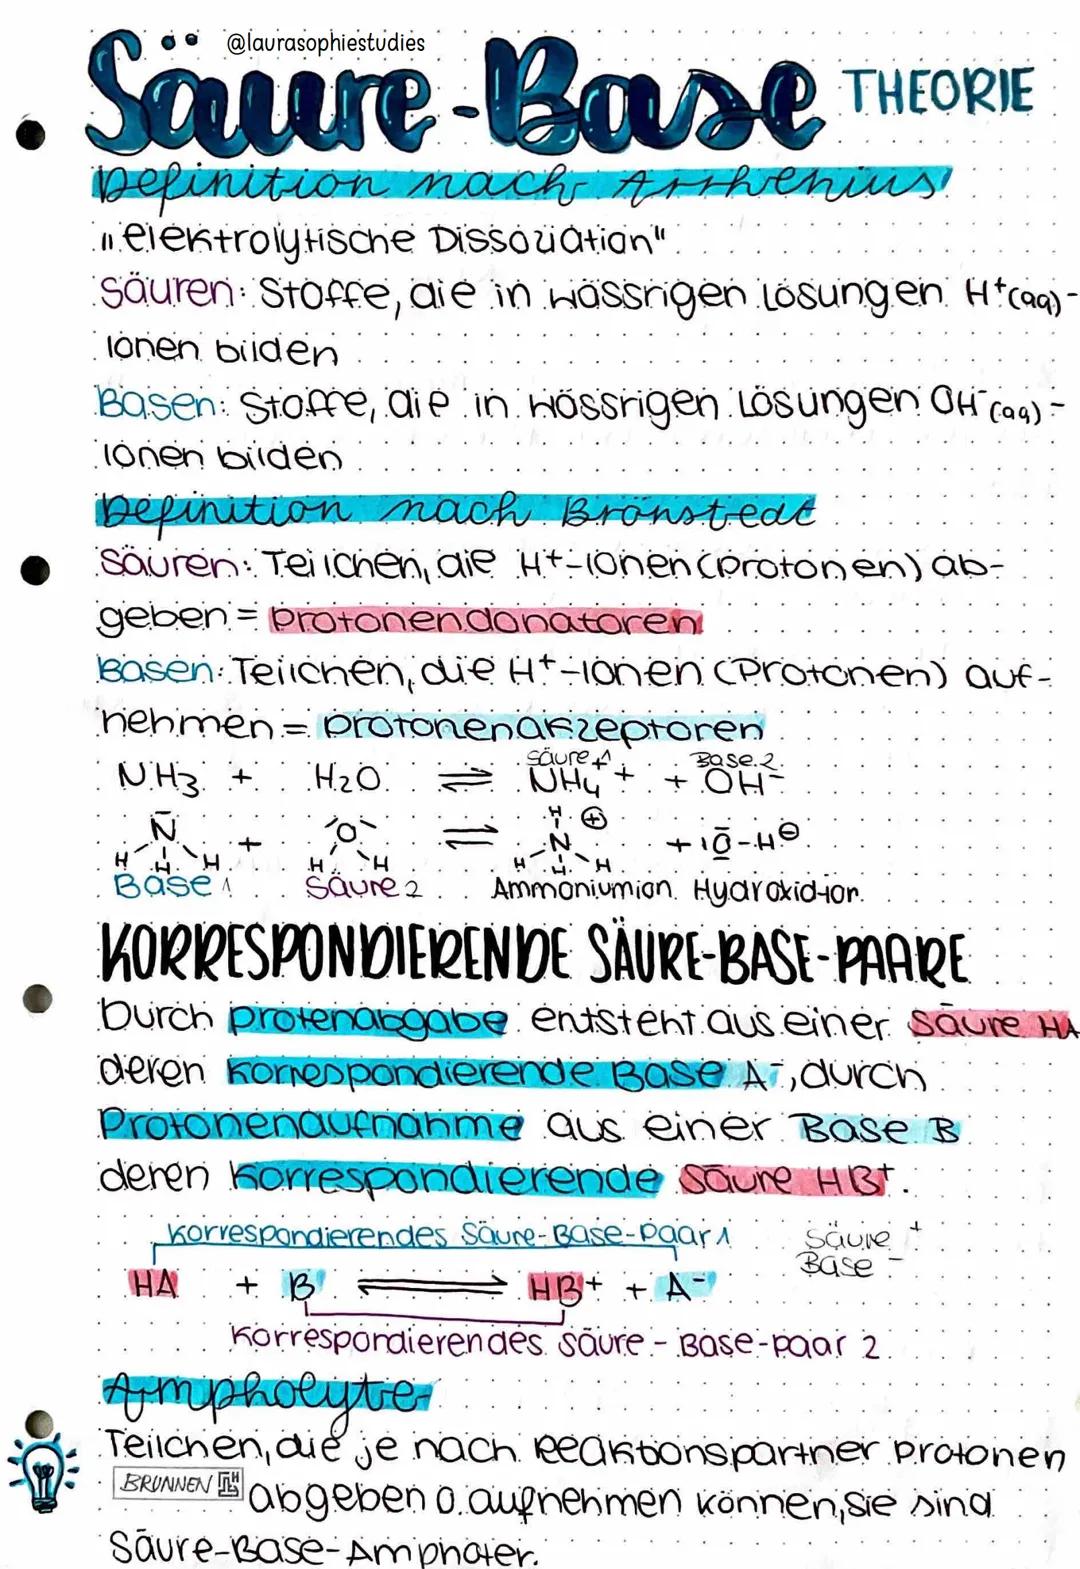 @laurasophiestudies
Säure-Base THEORIE
Definition nach Arrhenius
"elektrolytische Dissoziation"
Säuren: Stoffe, die in wässrigen Lösungen H+(aq)-
Ionen bilden
Basen: Stoffe, die in wässrigen Lösungen OH-(aq)-
Ionen bilden
Definition nach Brönstedt
Säuren: Teilchen, die H+-Ionen (Protonen) ab-
geben = Protonendonatoren
Basen: Teilchen, die H+-Ionen (Protonen) auf-
nehmen = Protonenakzeptoren
Säure 1 Base 2
NH3 + H2O ⇌ NH4+ + OH-
H ⊕
N̄ + O ⇌ N + |Ō-H⊖
H H H H H H H H
Base 1 Säure 2 Ammoniumion Hydroxidion
KORRESPONDIERENDE SÄURE-BASE-PAARE
Durch Protenabgabe entsteht aus einer Säure HA
deren korrespondierende Base A-, durch
Protonenaufnahme aus einer Base B
deren korrespondierende Säure HB+.
korrespondierendes Säure-Base-Paar 1
Säure +
Base -
HA + B ⇌ HB+ + A-
korrespondierendes Säure-Base-Paar 2
Ampholyte
Teilchen, die je nach Reaktionspartner Protonen
BRUNNEN
abgeben o. aufnehmen können, sie sind
Säure-Base-Amphoter.